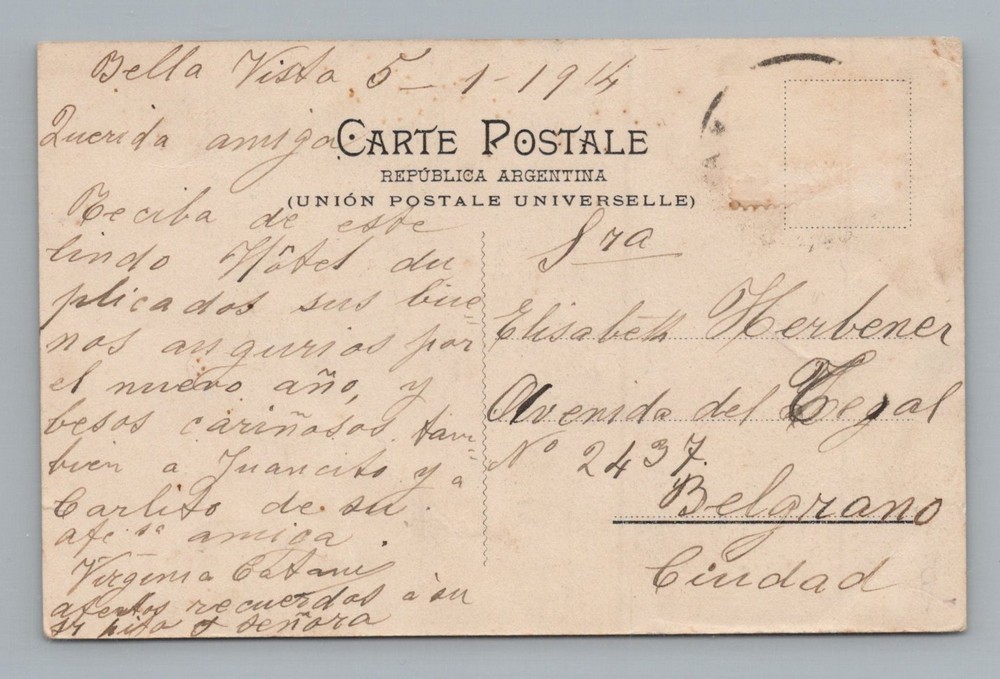 Bella Vista 5-1-1914
Querida amiga
CARTE POSTALE
REPÚBLICA ARGENTINA
(UNIÓN POSTALE UNIVERSELLE)
Reciba de este
lindo Hôtel du
plicados sus bue
nos angurios por
el nuevo año, y
besos cariñosos tam
bien a Juancito y a
Carlito de su
afe.sa amiga.
Virginia Catani
afectos recuerdos à su
señora
Sra
Elisabeth Herbener
Avenida del Tejal
No 2437.
Belgrano
Ciudad